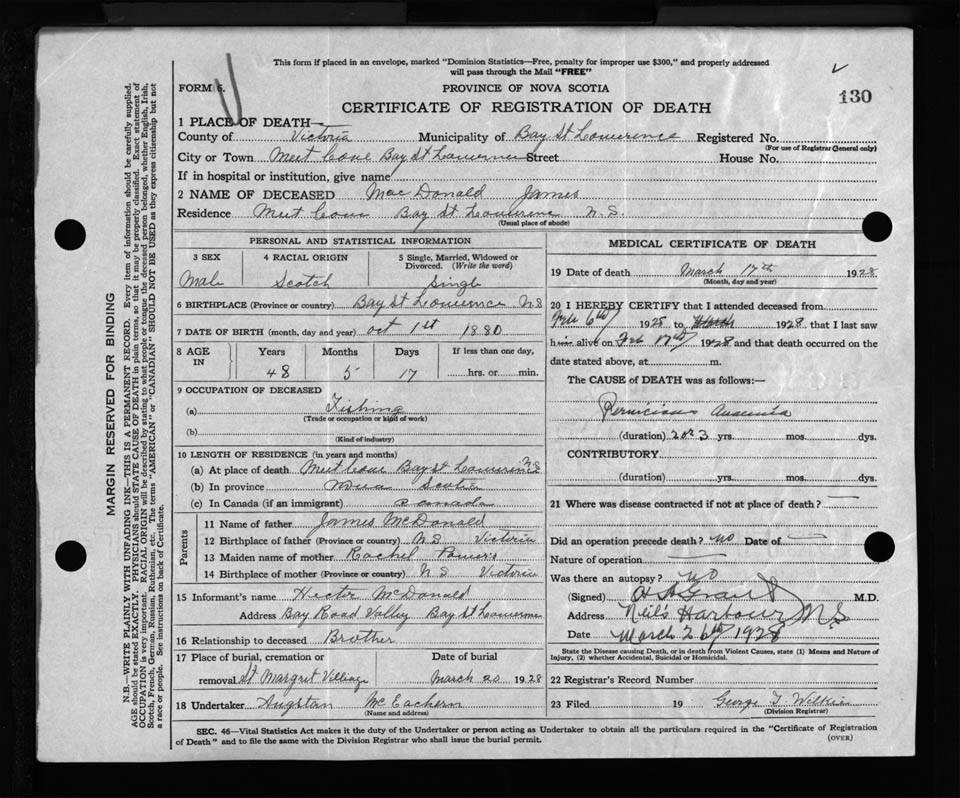 This form if placed in an envelope, marked "Dominion Statistics—Free, penalty for improper use $300," and properly addressed
will pass through the Mail "FREE"
FORM 6.
PROVINCE OF NOVA SCOTIA
130
CERTIFICATE OF REGISTRATION OF DEATH
1 PLACE OF DEATH—
County of Victoria Municipality of Bay St Lawrence Registered No.
(For use of Registrar General only)
City or Town Meet Cove Bay St Lawrence Street House No.
If in hospital or institution, give name
2 NAME OF DECEASED MacDonald James
Residence Meet Cove Bay St Lawrence N.S.
(Usual place of abode)
PERSONAL AND STATISTICAL INFORMATION
3 SEX 4 RACIAL ORIGIN 5 Single, Married, Widowed or
Divorced. (Write the word)
Male Scotch Single
6 BIRTHPLACE (Province or country) Bay St Lawrence NS
7 DATE OF BIRTH (month, day and year) Oct 1st 1880
8 AGE IN Years Months Days If less than one day,
48 5 17 hrs. or min.
9 OCCUPATION OF DECEASED
(a) Fishing
(Trade or occupation or kind of work)
(b)
(Kind of industry)
10 LENGTH OF RESIDENCE (in years and months)
(a) At place of death Meet Cove Bay St Lawrence NS
(b) In province Nova Scotia
(c) In Canada (if an immigrant) Canada
Parents
11 Name of father James McDonald
12 Birthplace of father (Province or country) N.S. Victoria
13 Maiden name of mother Rachel Powers
14 Birthplace of mother (Province or country) N S Victoria
15 Informant's name Hector McDonald
Address Bay Road Valley Bay St Lawrence
16 Relationship to deceased Brother
17 Place of burial, cremation or Date of burial
removal St Margret Village March 20 1928
18 Undertaker Angstan McEachern
(Name and address)
MEDICAL CERTIFICATE OF DEATH
19 Date of death March 17th 1928
(Month, day and year)
20 I HEREBY CERTIFY that I attended deceased from
Feb 6th 1925 to 1928 that I last saw
him alive on Feb 17th 1928 and that death occurred on the
date stated above, at m.
The CAUSE of DEATH was as follows:—
Pernicious Anaemia
(duration) 2 or 3 yrs. mos. dys.
CONTRIBUTORY
(duration) yrs. mos. dys.
21 Where was disease contracted if not at place of death?
Did an operation precede death? no Date of
Nature of operation
Was there an autopsy? no
(Signed) M.D.
Address Neil's Harbour N.S
Date March 26th 1928
State the Disease causing Death, or in death from Violent Causes, state (1) Means and Nature of
Injury, (2) whether Accidental, Suicidal or Homicidal.
22 Registrar's Record Number
23 Filed 19 George T Wilkie
(Division Registrar)
SEC. 46—Vital Statistics Act makes it the duty of the Undertaker or person acting as Undertaker to obtain all the particulars required in the "Certificate of Registration
of Death" and to file the same with the Division Registrar who shall issue the burial permit.
(OVER)
MARGIN RESERVED FOR BINDING
N.B.—WRITE PLAINLY WITH UNFADING INK—THIS IS A PERMANENT RECORD. Every item of information should be carefully supplied.
AGE should be stated EXACTLY. PHYSICIANS should STATE CAUSE OF DEATH in plain terms, so that it may be properly classified. Exact statement of
OCCUPATION is very important. RACIAL ORIGIN will be described by stating to what people or tongue the deceased person belonged, whether English, Irish,
Scotch, French, German, Russian, Ruthenian, etc. The terms "AMERICAN" or "CANADIAN" SHOULD NOT BE USED as they express citizenship but not
a race or people. See instructions on back of Certificate.